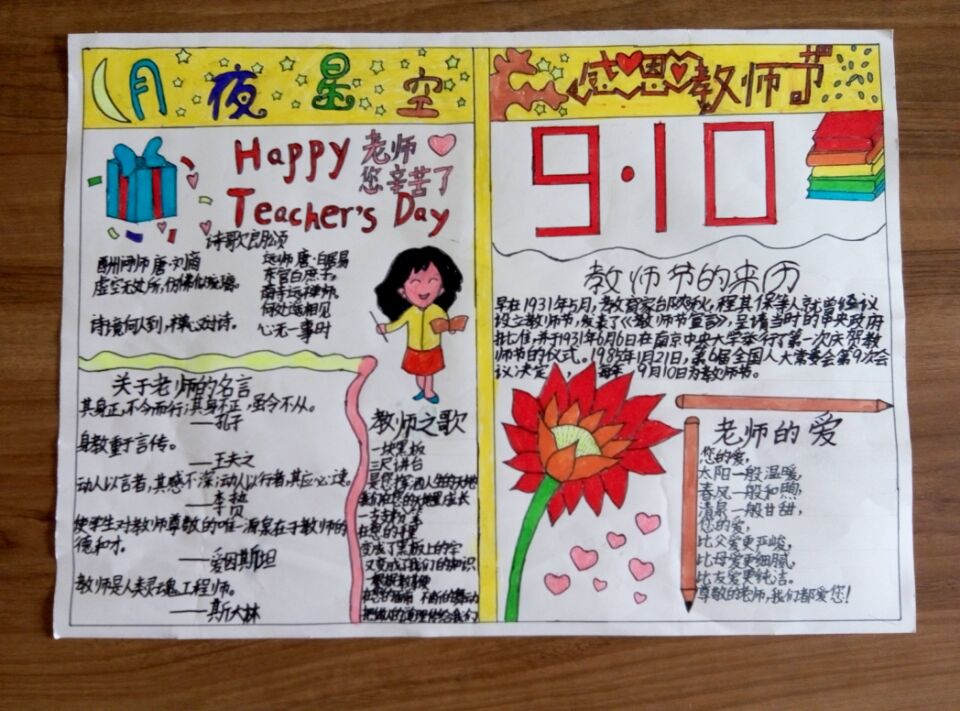 月夜星空
Happy
Teacher's Day
老师
您辛苦了
诗歌朗诵
酬州师 唐·刘商
虚空无处所,仿佛似琉璃。
诗境何人到,禅心对诗。
远师 唐·白居易
东宫白庶子,
南寺远禅师。
何处遥相见
心无一事时
关于老师的名言
其身正,不令而行,其身不正,虽令不从。
——孔子
身教重于言传。
——王夫之
动人以言者,其感不深动人以行者,其应必速。
——李贽
使学生对教师尊敬的唯一源泉在于教师的
德和才。
——爱因斯坦
教师是人类灵魂工程师。
——斯大林
教师之歌
一块黑板
三尺讲台
是您挥洒人生的天地
我们在您的天地里成长
一支粉笔
在您的手里
变成了黑板上的字
又变成了我们的知识
一根教鞭
感恩教师节
9·10
教师节的来历
早在1931年5月,教育家邰爽秋,程其保等人就曾经议
设立教师节,发表了《教师节宣言》,呈请当时的中央政府
批准,并于1931年6月6日在南京中央大学举行了第一次庆贺教
师节的仪式。1985年1月21日,第6届全国人大常委会第9次会
议决定,,每年,9月10日为教师节。
老师的爱
您的爱,
太阳一般温暖,
春风一般和煦,
清泉一般甘甜,
您的爱,
比父爱更严峻,
比母爱更细腻,
比友爱更纯洁。
尊敬的老师,我们都爱您!